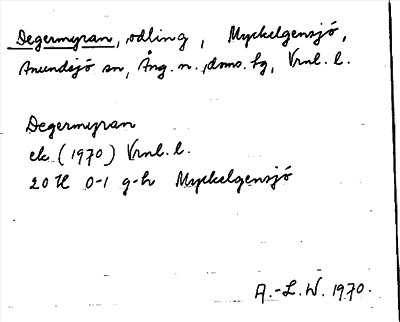 Degermyran, odling, Myckelgensjö,
Anundsjö sn, Ång. n. doms. fg, Vrnl. l.
Degermyran
ek (1970) Vrnl. l.
20 H 0-1 g-h Myckelgensjö
A.-L. W. 1970.